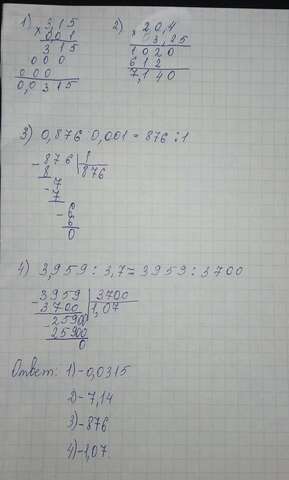 1) 3,15
× 0,01
3 1 5
0 0 0
0 0 0
0,0 3 1 5
2) 2 0,4
× 0 3,25
1 0 2 0
6 1 2
7,1 4 0
3) 0,876 0,001 = 876 : 1
- 876 | 1
8 | 876
- 7
7
- 6
6
0
4) 3,959 : 3,7 = 3959 : 3700
- 3959 | 3700
3700 | 1,07
25900
25900
0
Ответ: 1) - 0,0315
2) - 7,14
3) - 876
4) - 1,07.